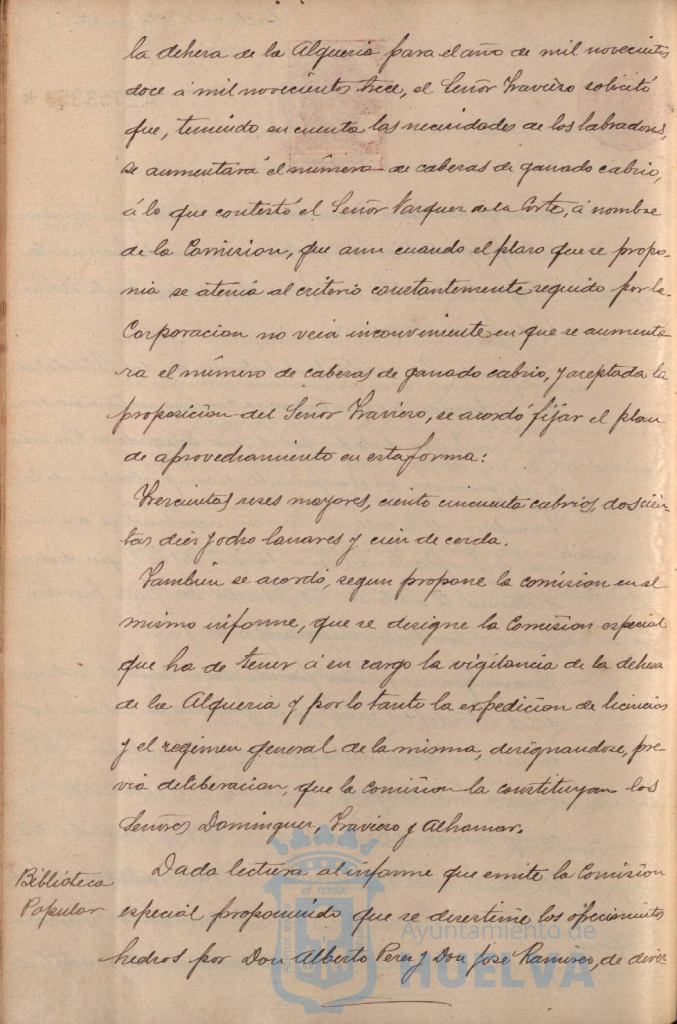 la dehesa de la Alqueria para el año de mil novecientos
doce á mil novecientos trece, el Señor Travieso solicitó
que, teniendo en cuenta las necesidades de los labradores,
se aumentará el número de cabezas de ganado cabrio,
á lo que contestó el Señor Vazquez de la Corte, á nombre
de la Comision, que aun cuando el plazo que se propo-
nia se atenia al criterio constantemente seguido por la
Corporacion no veia inconveniente en que se aumenta-
ra el número de cabezas de ganado cabrio, y aceptada la
proposicion del Señor Travieso, se acordó fijar el plan
de aprovechamiento en esta forma:
Trescientas reses mayores, ciento cincuenta cabrios, doscien-
tas diez y ocho lanares y cien de cerda.
Tambien se acordó, segun propone la comision en el
mismo informe, que se designe la Comision especial
que ha de tener á su cargo la vigilancia de la dehesa
de la Alqueria y por lo tanto la expedicion de licencias
y el regimen general de la misma, designandose, pre-
via deliberacion, que la comision la constituyan los
Señores Dominguez, Travieso y Alhamar.
Biblioteca
Popular
Dada lectura al informe que emite la Comision
especial proponiendo que se desestime los ofrecimientos
hechos por Don Alberto Perez y Don José Ramirez, de diver-
Ayuntamiento de
HUELVA